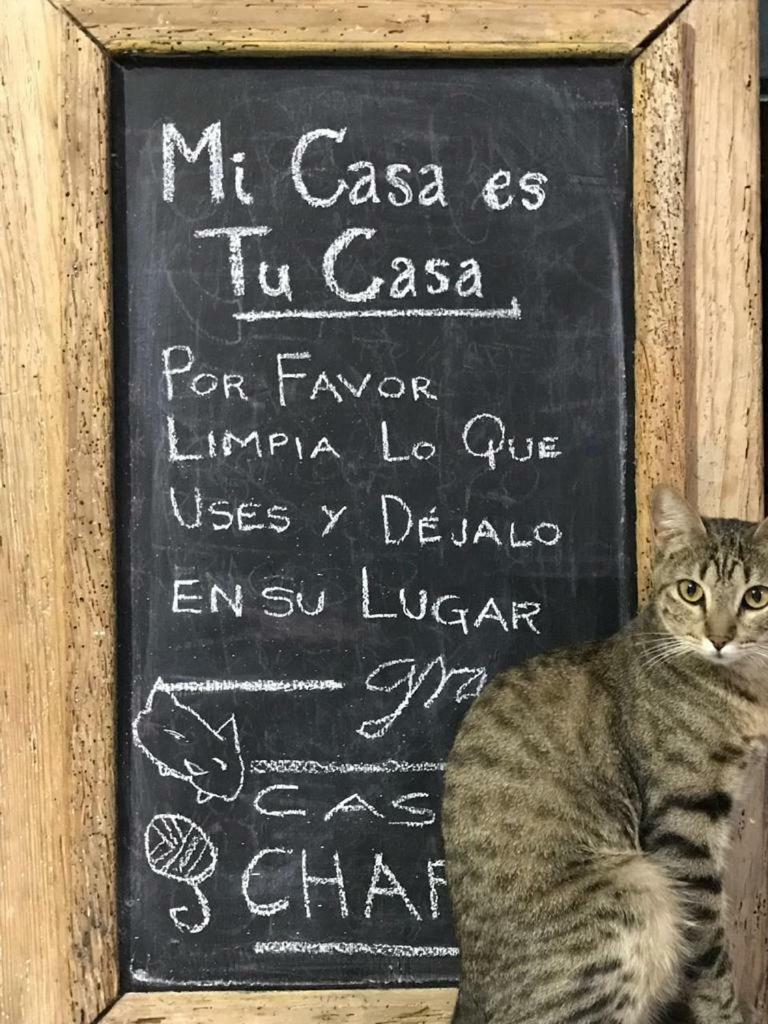 Mi Casa es
Tu Casa
POR FAVOR
LIMPIA LO QUE
USES Y DÉJALO
EN SU LUGAR